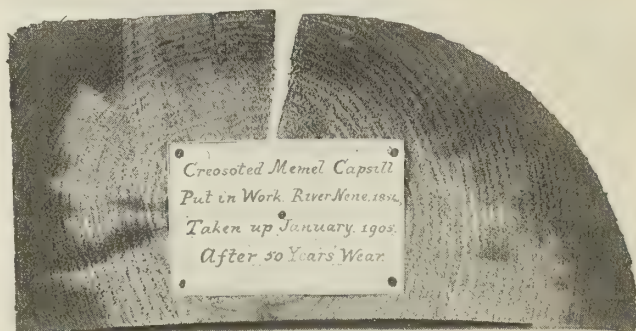 Creosoted Memel Capsill
Put in Work. River Nene.
Taken up January. 1905.
After 50 Years Wear.